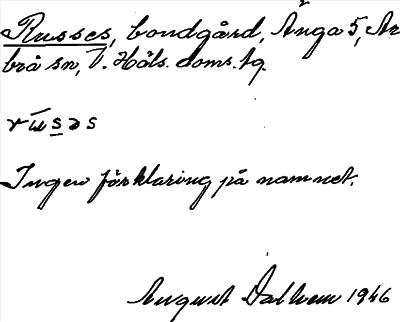 Russes, bondgård, Änga 5, Ar
brå sn, V. Häls. doms. hg.
rūsəs
Ingen förklaring på namnet.
August Dalhem 1946